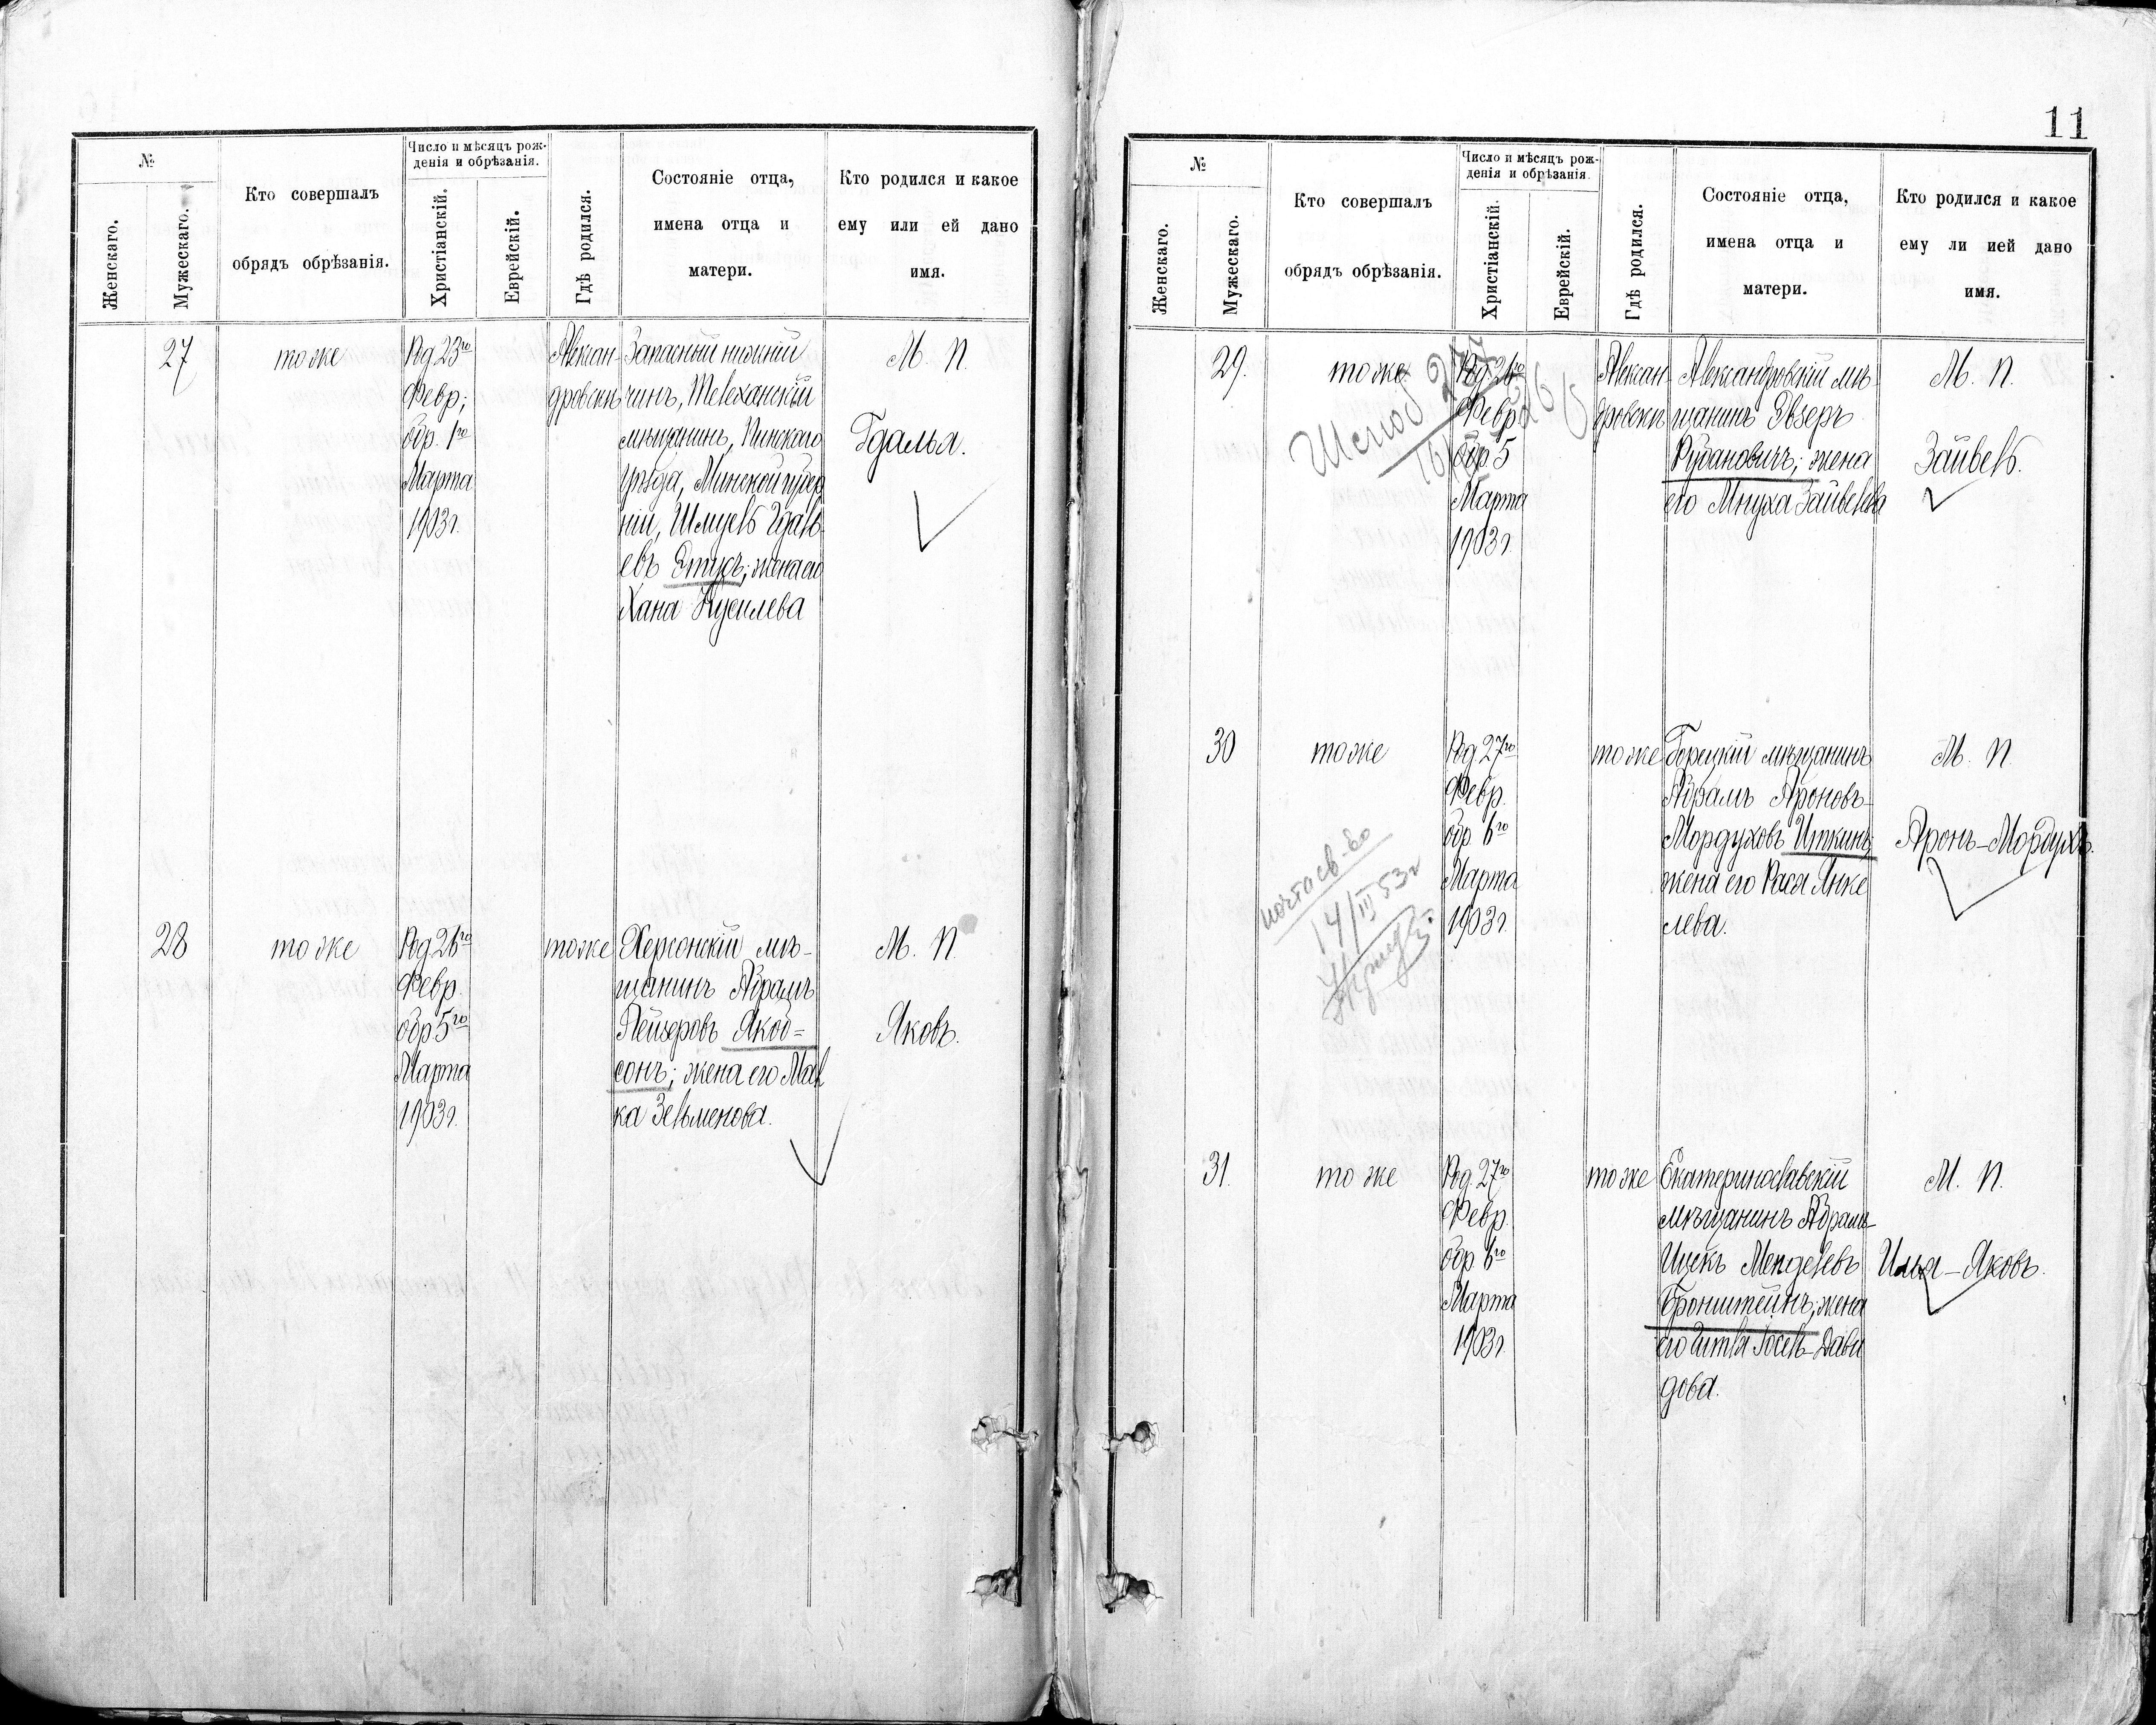 №
Женскаго.
Мужескаго.
Кто совершалъ
обрядъ обрѣзанія.
Число и мѣсяцъ рож-
денія и обрѣзанія.
Христіанскій.
Еврейскій.
Гдѣ родился.
Состояніе отца,
имена отца и
матери.
Кто родился и какое
ему или ей дано
имя.
27
тоже
Род. 23го
Февр;
обр. 1го
Марта
1903г.
Алексан-
дровскъ
Запасный нижній
чинъ, Телеханскій
мѣщанинъ, Пинскаго
уѣзда, Минской губер
ніи, Шмуель Гдаль-
евъ Этусъ; жена его
Хана Нусилева
М. П.
Гдалья.
28
тоже
Род. 26го
Февр.
обр. 5го
Марта
1903г.
тоже
Херсонскій мѣ-
щанинъ Абрамъ
Лейзеровъ Якоб=
сонъ; жена его Мал
ка Зельменова.
М. П.
Яковъ.
11
№
Женскаго.
Мужескаго.
Кто совершалъ
обрядъ обрѣзанія.
Число и мѣсяцъ рож-
денія и обрѣзанія.
Христіанскій.
Еврейскій.
Гдѣ родился.
Состояніе отца,
имена отца и
матери.
Кто родился и какое
ему ли ией дано
имя.
29.
тоже
Февр.
обр. 5
Марта
1903г.
Алексан-
дровскъ
Александровскій мѣ-
щанинъ Эвзеръ
Рубановичъ; жена
его Мнуха Зайвелева
М. П.
Зайвель.
30
тоже
Род. 27го
Февр.
обр. 6го
Марта
1903г.
тоже
Горецкій мѣщанинъ
Абрамъ Ароновъ-
Мордуховъ Иткинъ;
жена его Рася Янке
лева.
М. П.
Аронъ-Мордухъ.
14/III 53г
31.
тоже
Род. 27го
Февр.
обр. 6го
Марта
1903г.
тоже
Екатеринославскій
мѣщанинъ Абрамъ-
Ицекъ Менделевъ
Бронштейнъ; жена
его Гитля Іосель-Дави
дова.
М. П.
Илья-Яковъ.